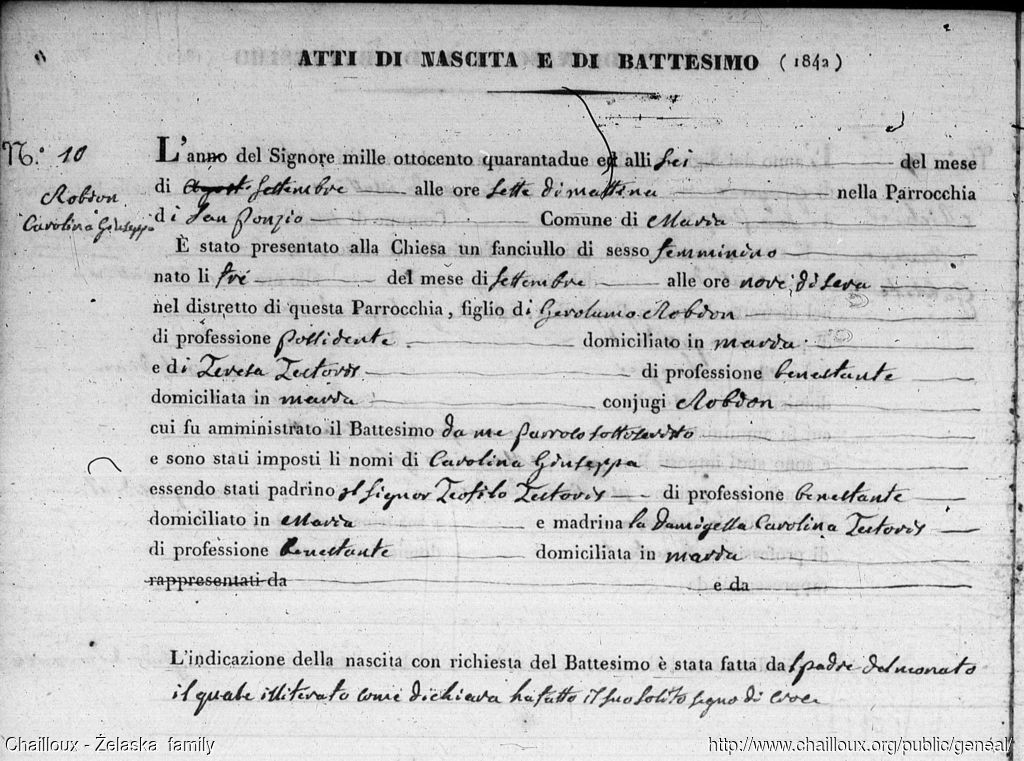 ATTI DI NASCITA E DI BATTESIMO (1842)
N.º 10
Robdon
Carolina Giuseppa
L'anno del Signore mille ottocento quarantadue ed alli sei del mese
di Agost. Settembre alle ore sette di mattina nella Parrocchia
di San Ponzio Comune di
È stato presentato alla Chiesa un fanciullo di sesso femminino
nato li tré del mese di settembre alle ore nove di sera
nel distretto di questa Parrocchia, figlio di Gerolamo Robdon
di professione possidente domiciliato in
e di Teresa Testoris di professione benestante
domiciliata in conjugi Robdon
cui fu amministrato il Battesimo da me parroco sottoscritto
e sono stati imposti li nomi di Carolina Giuseppa
essendo stati padrino il Signor Teofilo Testoris di professione benestante
domiciliato in e madrina la Damigella Carolina Testoris
di professione benestante domiciliata in
rappresentati da e da
L'indicazione della nascita con richiesta del Battesimo è stata fatta dal padre del neonato
il quale illiterato come dichiara ha fatto il suo solito segno di croce
Chailloux - Żelaska family
http://www.chailloux.org/public/geneal/